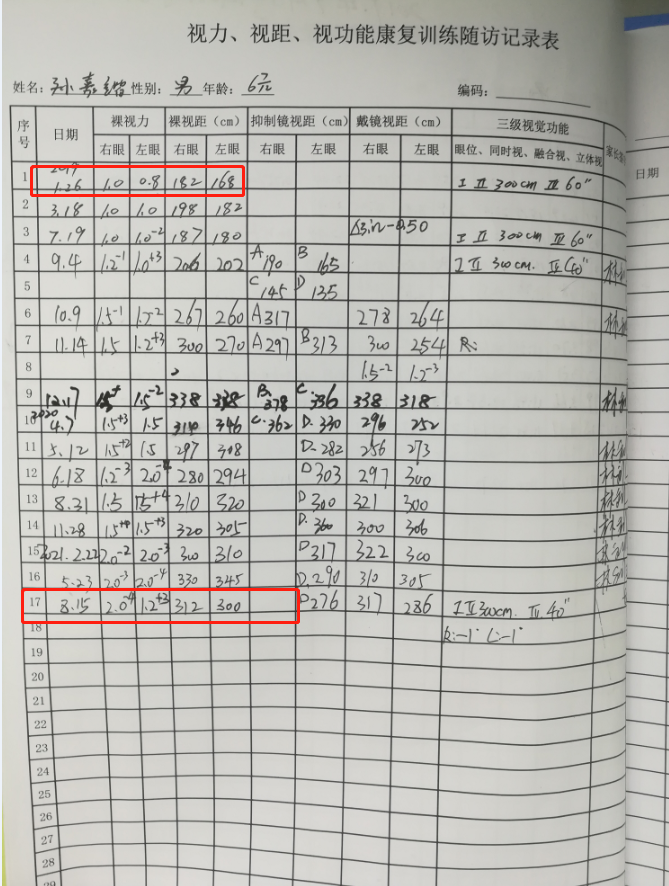 视力、视距、视功能康复训练随访记录表
姓名：孙嘉 性别：男 年龄：6元 编码：
序号 日期 裸视力 裸视距（cm） 抑制镜视距（cm） 戴镜视距（cm） 三级视觉功能
右眼 左眼 右眼 左眼 右眼 左眼 右眼 左眼 眼位、同时视、融合视、立体视 家长 日期
2019
1 1.26 1.0 0.8 182 168 I II 300cm III 60"
2 3.18 1.0 1.0 198 182
3 7.19 1.0 1.0-2 187 180 -0.50 I II 300cm III 60"
4 9.4 1.2-1 1.0+3 206 202 A190 B165 I II 300cm. III 40"
5 C145 D135
6 10.9 1.5-1 1.5-2 267 260 A317 278 264
7 11.14 1.5 1.2+3 300 270 A297 B313 300 254 R:
8 1.5-2 1.2-3
9 12.17 1.5+ 1.5-2 338 338 B.378 C.336 338 318
2020
10 4.7 1.5+3 1.5 310 346 C.362 D.330 296 252
11 5.12 1.5+2 1.5 297 308 D.282 256 273
12 6.18 1.2-3 2.0-4 280 294 D303 297 300
13 8.31 1.5 1.5+4 310 320 D300 321 300
14 11.28 1.5+4 1.5+3 320 305 D.300 300 306
15 2021.2.22 2.0-2 2.0-3 300 310 D317 322 300
16 5.23 2.0-3 2.0-4 330 345 D.290 310 305
17 8.15 2.0-4 1.2+3 312 300 D276 317 286 I II 300cm. III 40"
18 R:-1° L:-1°
19
20
21
22
23
24
25
26
27
28